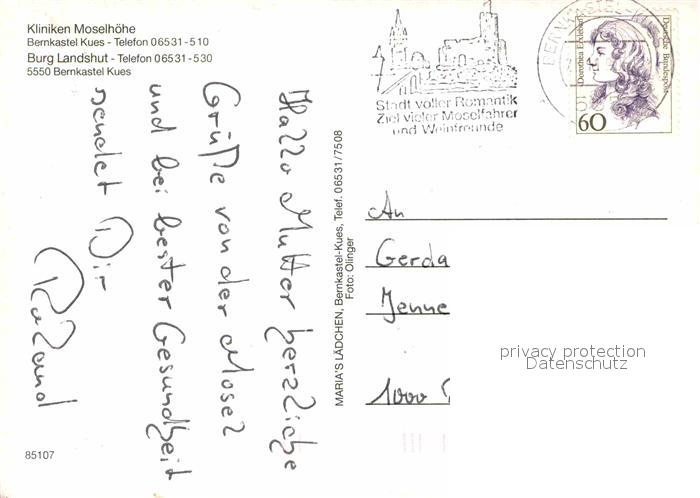 Kliniken Moselhöhe
Bernkastel Kues - Telefon 06531-510
Burg Landshut - Telefon 06531-530
5550 Bernkastel Kues
Hallo Mutter herzliche
Grüße von der Mosel
und bei bester Gesundheit
sendet Dir
Roland
85107
MARIA'S LÄDCHEN, Bernkastel-Kues, Telef. 06531/7508
Foto: Olinger
Stadt voller Romantik
Ziel vieler Moselfahrer
und Weinfreunde
BERNKASTEL-
Dorothea Erxleben
Deutsche Bundespost
60
An
Gerda
Jenne
1000
privacy protection
Datenschutz